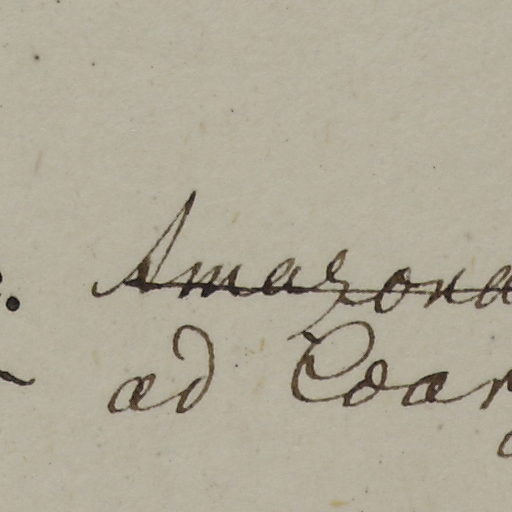 Amazona
ad Coar